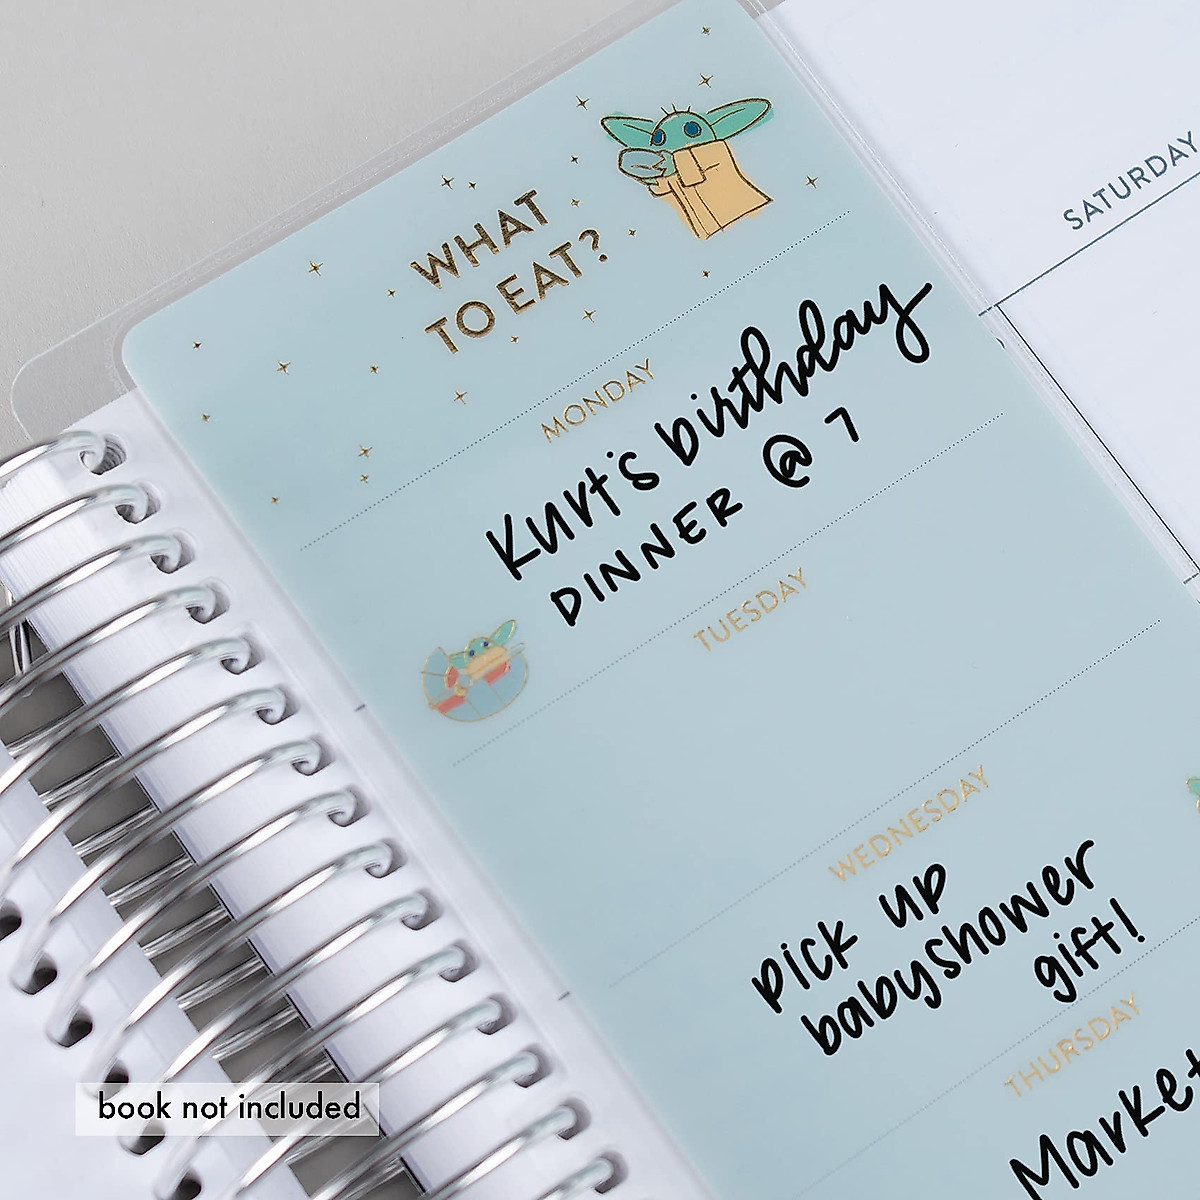 WHAT
TO EAT?
SATURDAY
MONDAY
Kurt's birthday
DINNER @ 7
TUESDAY
WEDNESDAY
pick up
babyshower
gift!
THURSDAY
Market
book not included